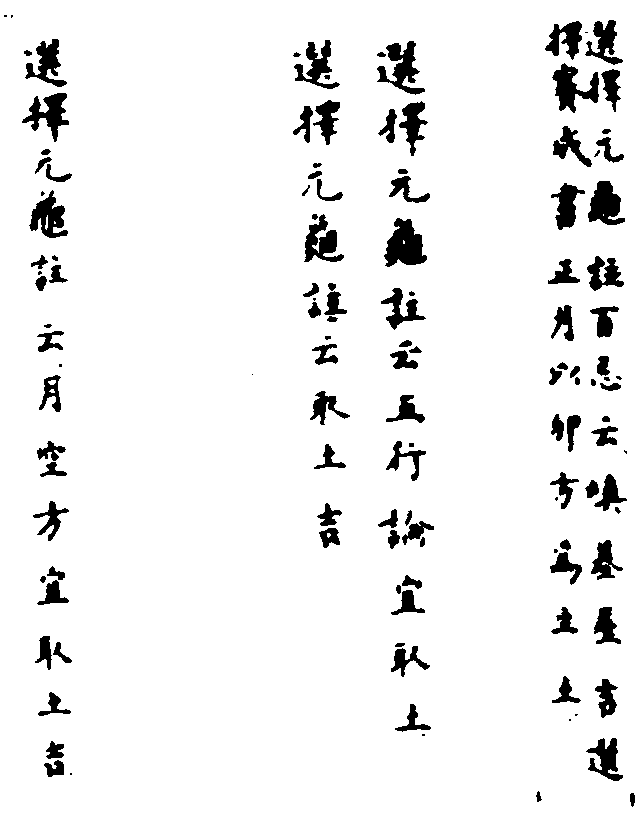 選擇元龜註百忌云填基壓吉選
擇賽成書正月以卯方爲主土
選擇元龜註云五行論宜取土
選擇元龜註云取土吉
選擇元龜註云月空方宜取土吉